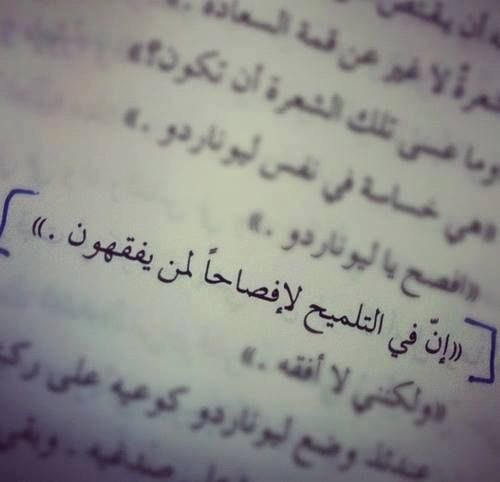 ه أن يقتنص
شعرةً لا غير عن قمة السعاده .»
وما عسى تلك الشعرة أن تكون؟»
«هي خساسة في نفس ليوناردو .»
«افصح يا ليوناردو .»
«إنّ في التلميح لإفصاحاً لمن يفقهون .»
«ولكنني لا أفقه .»
عندئذ وضع ليوناردو كوعيه على ركبت
صدغيه . وبقي